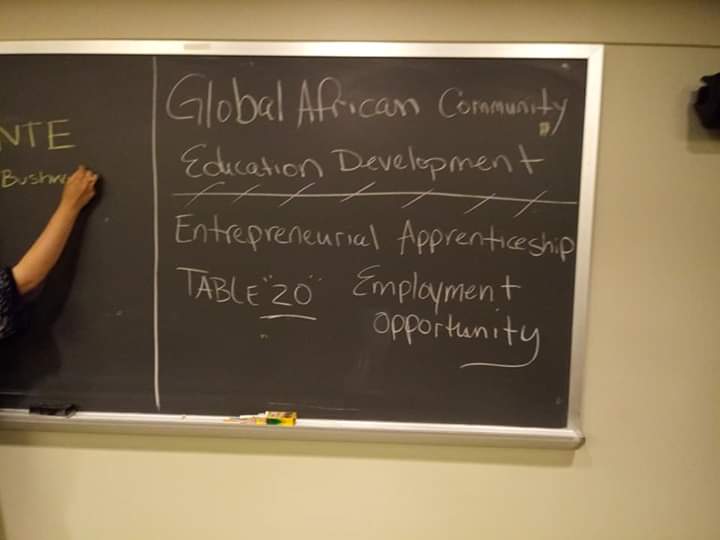 NTE
Global African Community
Education Development
Entrepreneurial Apprenticeship
TABLE "20" Employment
Opportunity